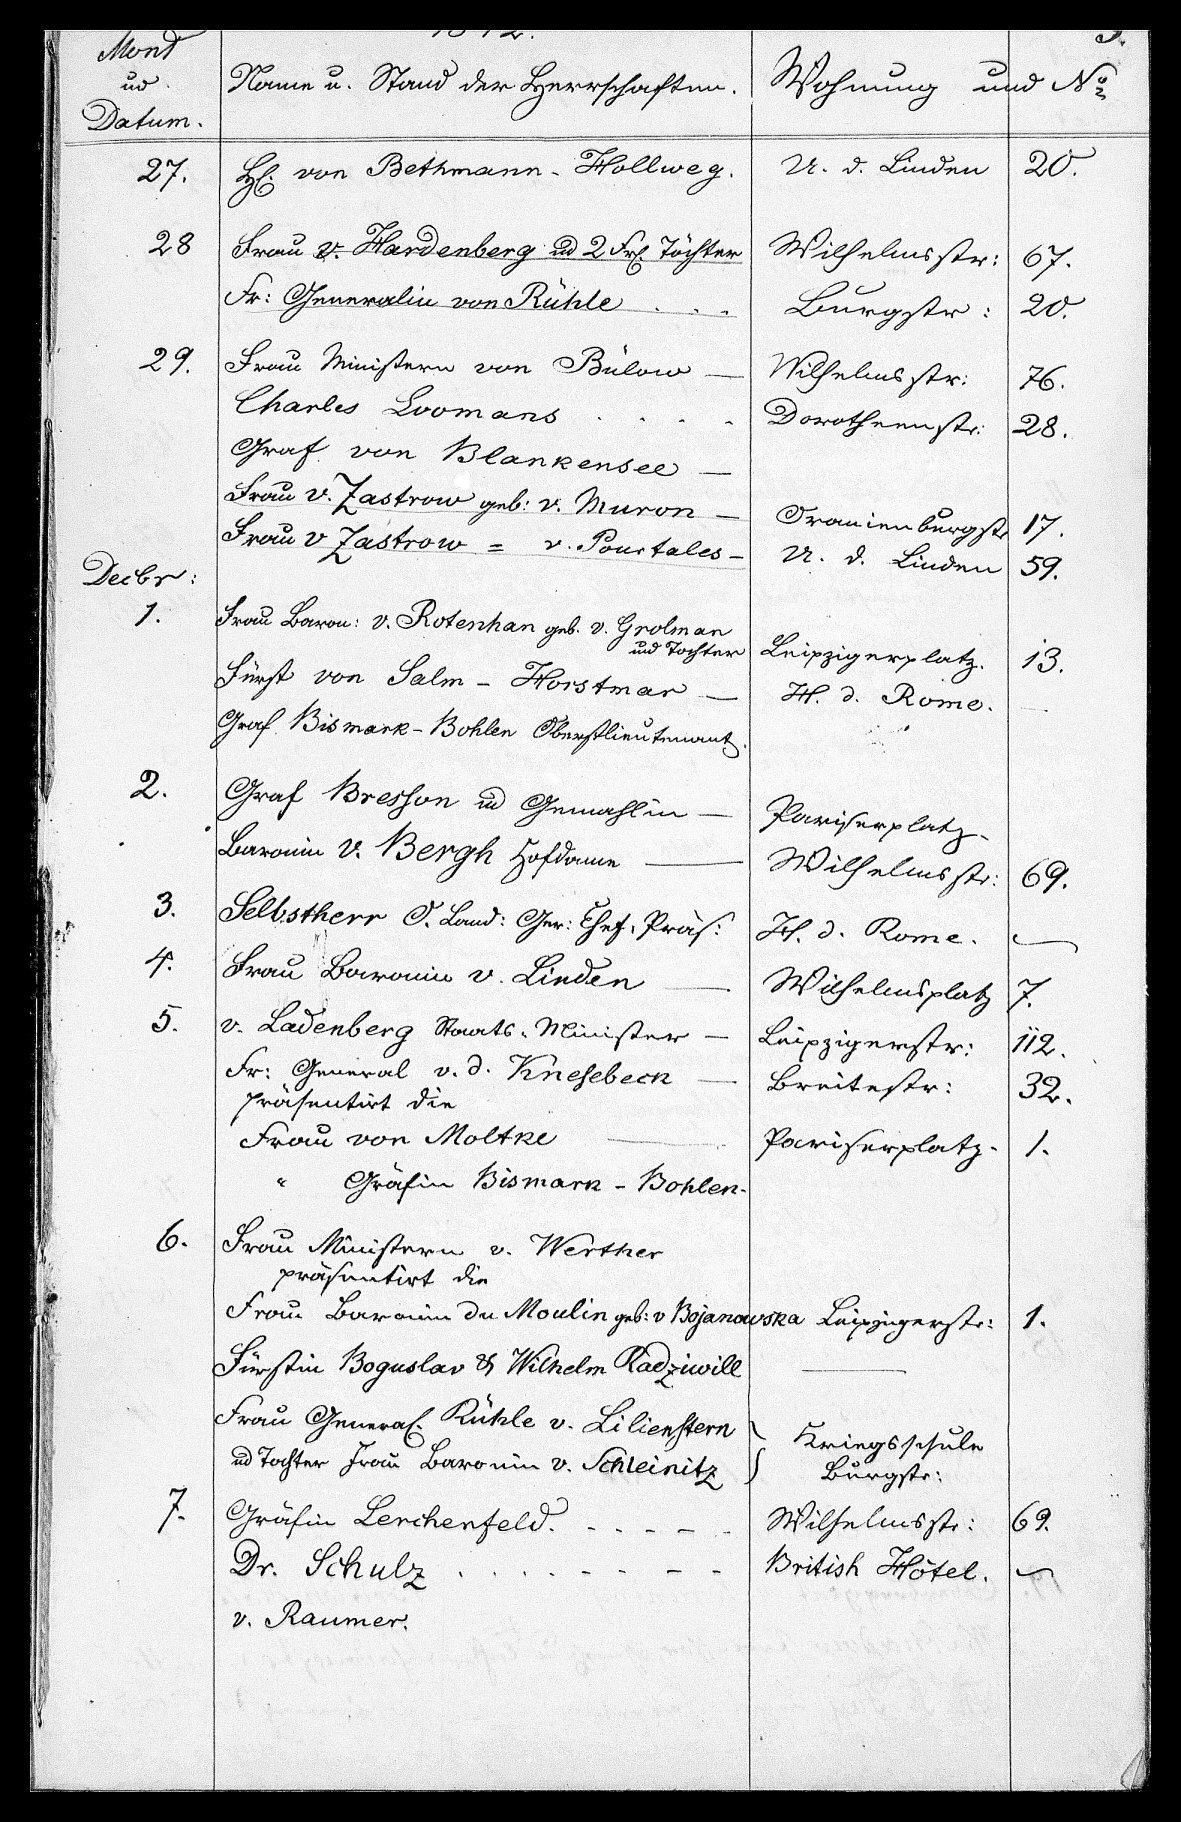 Mond
ud
Datum.
Name u. Stand der Herrschaften. Wohnung und No
27. H. von Bethmann-Hollweg. U. d. Linden 20.
28 Frau v. Hardenberg ud 2 Frl. Töchter Wilhelmsstr: 67.
Fr: Generalin von Rühle . . . Burgstr: 20.
29. Frau Ministern von Bülow — Wilhelmsstr: 76.
Charles Loomans . . . . Dorotheenstr: 28.
Graf von Blankensee —
Frau v. Zastrow geb: v. Muron — Oranienburgstr 17.
Frau v Zastrow = v. Pourtales — U. d. Linden 59.
Decbr:
1. Frau Baron: v. Rotenhan geb. v. Grolman
und Tochter Leipzigerplatz. 13.
Fürst von Salm-Horstmar — H. d. Rome. —
Graf Bismark-Bohlen Oberstlieutenant.
2. Graf Bresson ud Gemahlin — Pariserplatz.
Baronin v. Bergh Hofdame — Wilhelmsstr: 69.
3. Selbstherr O. Land: Ger: Chef, Präs: H. d. Rome. —
4. Frau Baronin v. Linden — Wilhelmsplatz 7.
5. v. Ladenberg Staats-Minister — Leipzigerstr: 112.
Fr: General v. d. Knesebeck — Breitestr: 32.
präsentirt die
Frau von Moltke — Pariserplatz. 1.
" Gräfin Bismark-Bohlen.
6. Frau Ministern v. Werther
präsentirt die
Frau Baronin du Moulin geb: v Bojanowska Leipzigerstr: 1.
Fürstin Boguslav & Wilhelm Radziwill —
Frau General. Rühle v. Lilienstern } Kriegsschule
ud Tochter Frau Baronin v. Schleinitz } Burgstr:
7. Gräfin Lerchenfeld. - - - - - Wilhelmsstr: 69.
Dr. Schulz . . . . - - - - British Hôtel. —
v. Raumer.